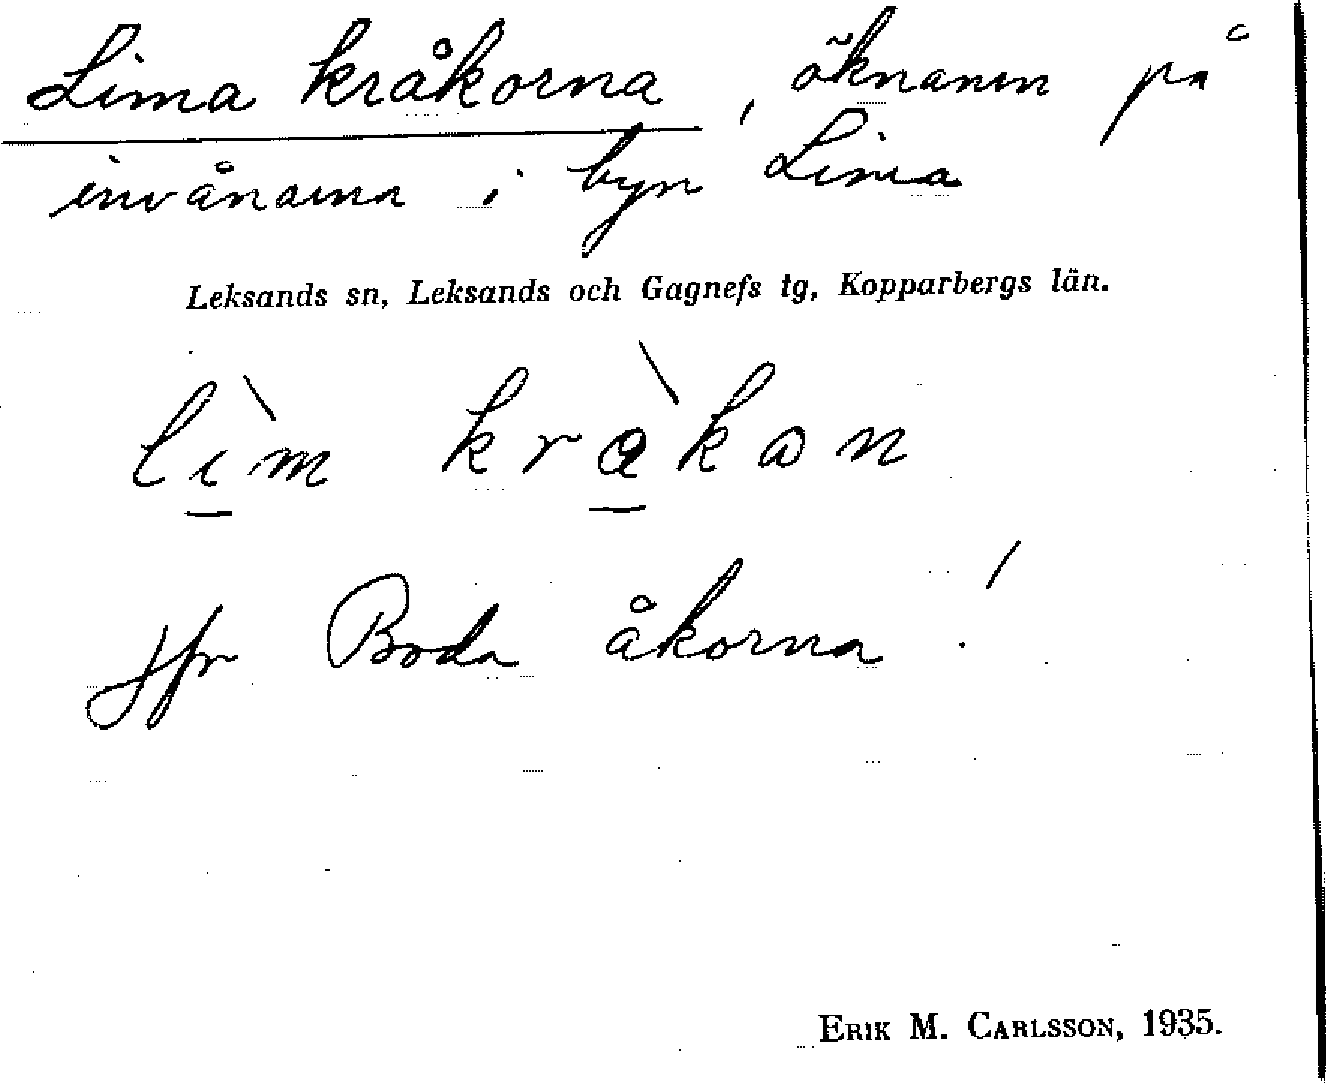 Lima kråkorna, öknamn på
invånarna i byn Lima
Leksands sn, Leksands och Gagnefs tg, Kopparbergs län.
lìm kràkan
Jfr Boda åkorna!
ERIK M. CARLSSON, 1935.